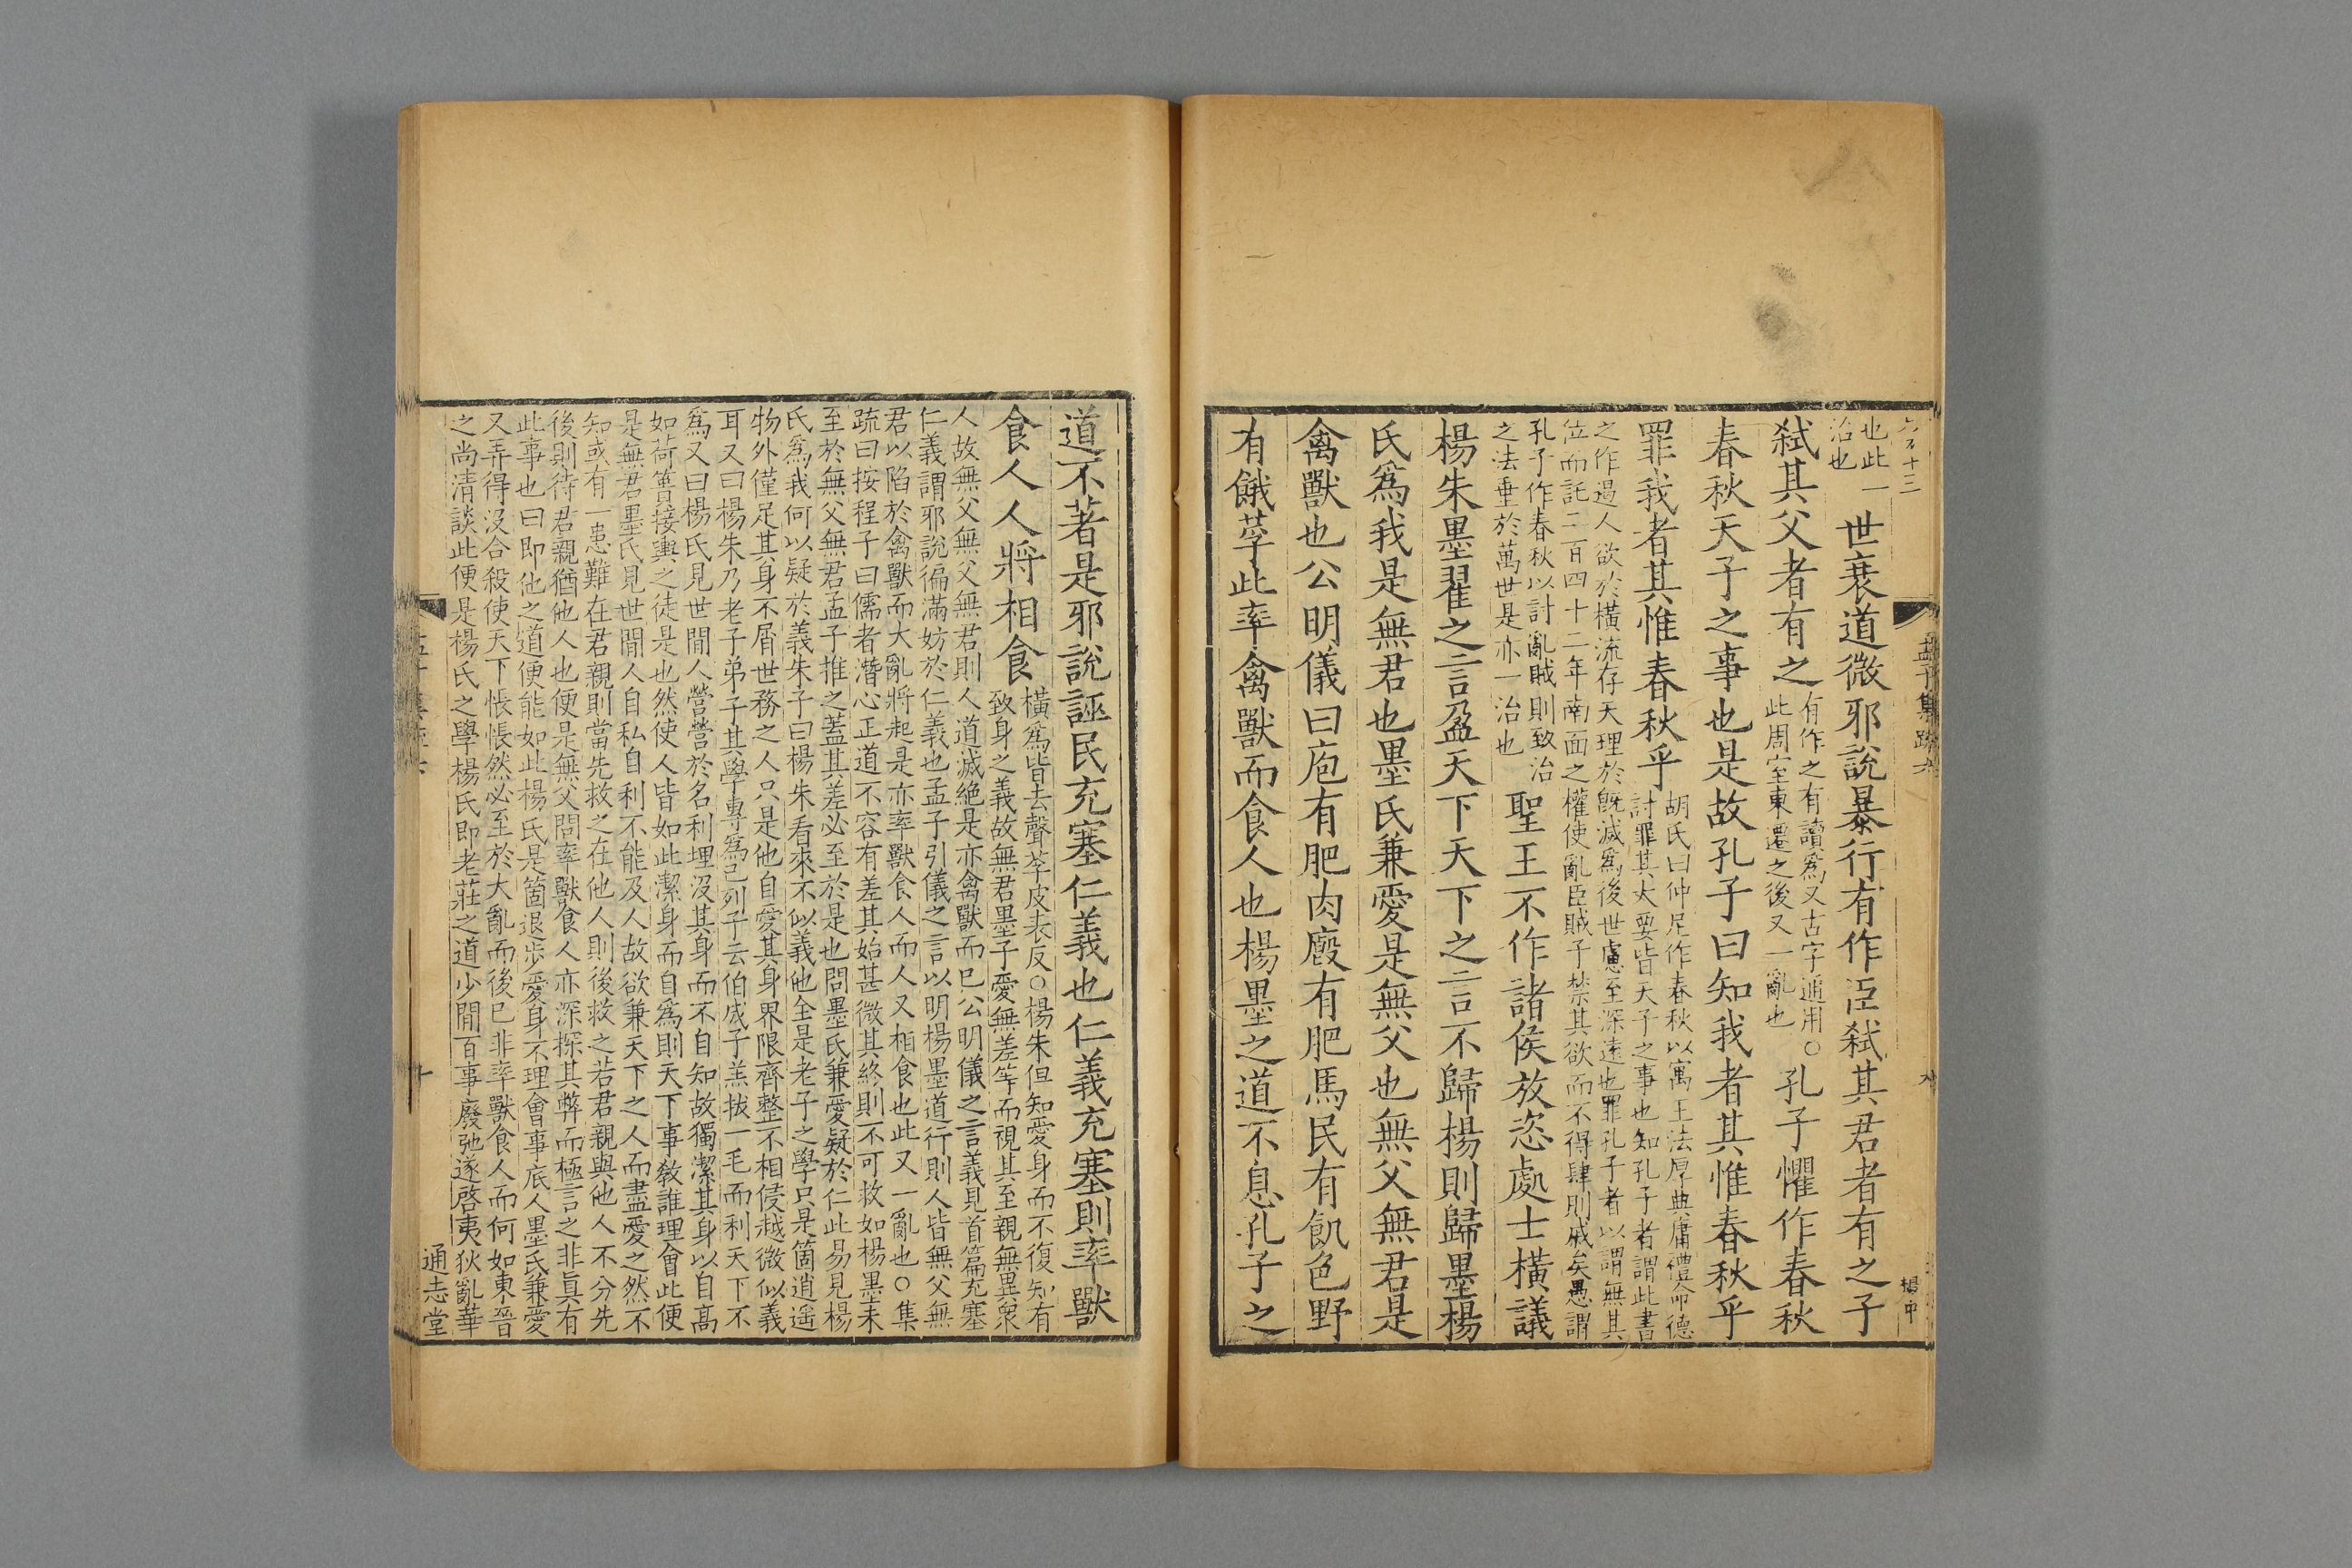 孟子集疏六
楊中
也此一
治也
世衰道微邪說暴行有作臣弒其君者有之子
弒其父者有之
有作之有讀爲又古字通用○
此周室東遷之後又一亂也
孔子懼作春秋
春秋天子之事也是故孔子曰知我者其惟春秋乎
罪我者其惟春秋乎
胡氏曰仲尼作春秋以寓王法厚典庸禮命德
討罪其大要皆天子之事也知孔子者謂此書
之作遏人欲於橫流存天理於旣滅爲後世慮至深遠也罪孔子者以謂無其
位而託二百四十二年南面之權使亂臣賊子禁其欲而不得肆則戚矣愚謂
孔子作春秋以討亂賊則致治
之法垂於萬世是亦一治也
聖王不作諸侯放恣處士橫議
楊朱墨翟之言盈天下天下之言不歸楊則歸墨楊
氏爲我是無君也墨氏兼愛是無父也無父無君是
禽獸也公明儀曰庖有肥肉廏有肥馬民有飢色野
有餓莩此率禽獸而食人也楊墨之道不息孔子之
道不著是邪說誣民充塞仁義也仁義充塞則率獸
食人人將相食
橫爲皆去聲莩皮表反○楊朱但知愛身而不復知有
致身之義故無君墨子愛無差等而視其至親無異衆
人故無父無父無君則人道滅絶是亦禽獸而已公明儀之言義見首篇充塞
仁義謂邪說徧滿妨於仁義也孟子引儀之言以明楊墨道行則人皆無父無
君以陷於禽獸而大亂將起是亦率獸食人而人又相食也此又一亂也○集
疏曰按程子曰儒者潛心正道不容有差其始甚微其終則不可救如楊墨末
至於無父無君孟子推之蓋其差必至於是也問墨氏兼愛疑於仁此易見楊
氏爲我何以疑於義朱子曰楊朱看來不似義他全是老子之學只是箇逍遙
物外僅足其身不屑世務之人只是他自愛其身界限齊整不相侵越微似義
耳又曰楊朱乃老子弟子其學專爲己列子云伯成子羔拔一毛而利天下不
爲又曰楊氏見世間人營營於名利埋沒其身而不自知故獨潔其身以自高
如荷蕢接輿之徒是也然使人皆如此潔身而自爲則天下事敎誰理會此便
是無君墨氏見世間人自私自利不能及人故欲兼天下之人而盡愛之然不
知或有一患難在君親則當先救之在他人則後救之若君親與他人不分先
後則待君親猶他人也便是無父問率獸食人亦深探其弊而極言之非眞有
此事也曰卽他之道便能如此楊氏是箇退步愛身不理會事底人墨氏兼愛
又弄得沒合殺使天下倀倀然必至於大亂而後已非率獸食人而何如東晉
之尚清談此便是楊氏之學楊氏卽老莊之道少間百事廢弛遂啓夷狄亂華
通志堂